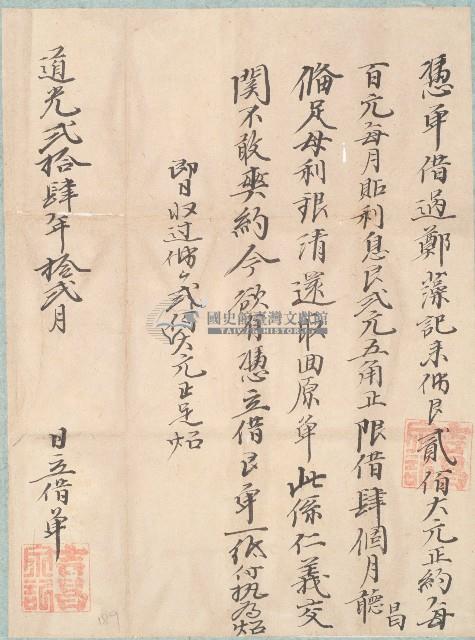 憑单借過鄭藻記来佛艮貳佰大元正約每
百元每月貼利息艮弍元五角正限借肆個月聽昌
偹足母利銀清還取回原单此係仁義交
関不敢爽約今欲有憑立借艮单一紙付执為炤
即日收过佛艮弍佰大元正足炤
道光弍拾肆年拾弍月
日立借单
國史館臺灣文獻館
TAIWAN HISTORICA
189